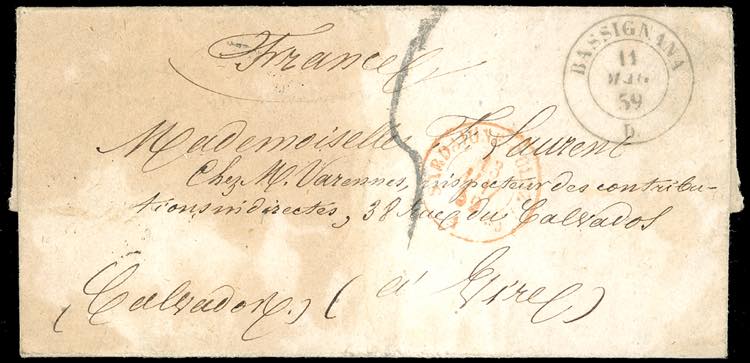 France
BASSIGNANA
11
59
D
Mademoiselle Laurent
Chez M. Varennes, inspecteur des contribu-
tions indirectes, 38 Rue du Calvados
(Calvados.) (à Vire)